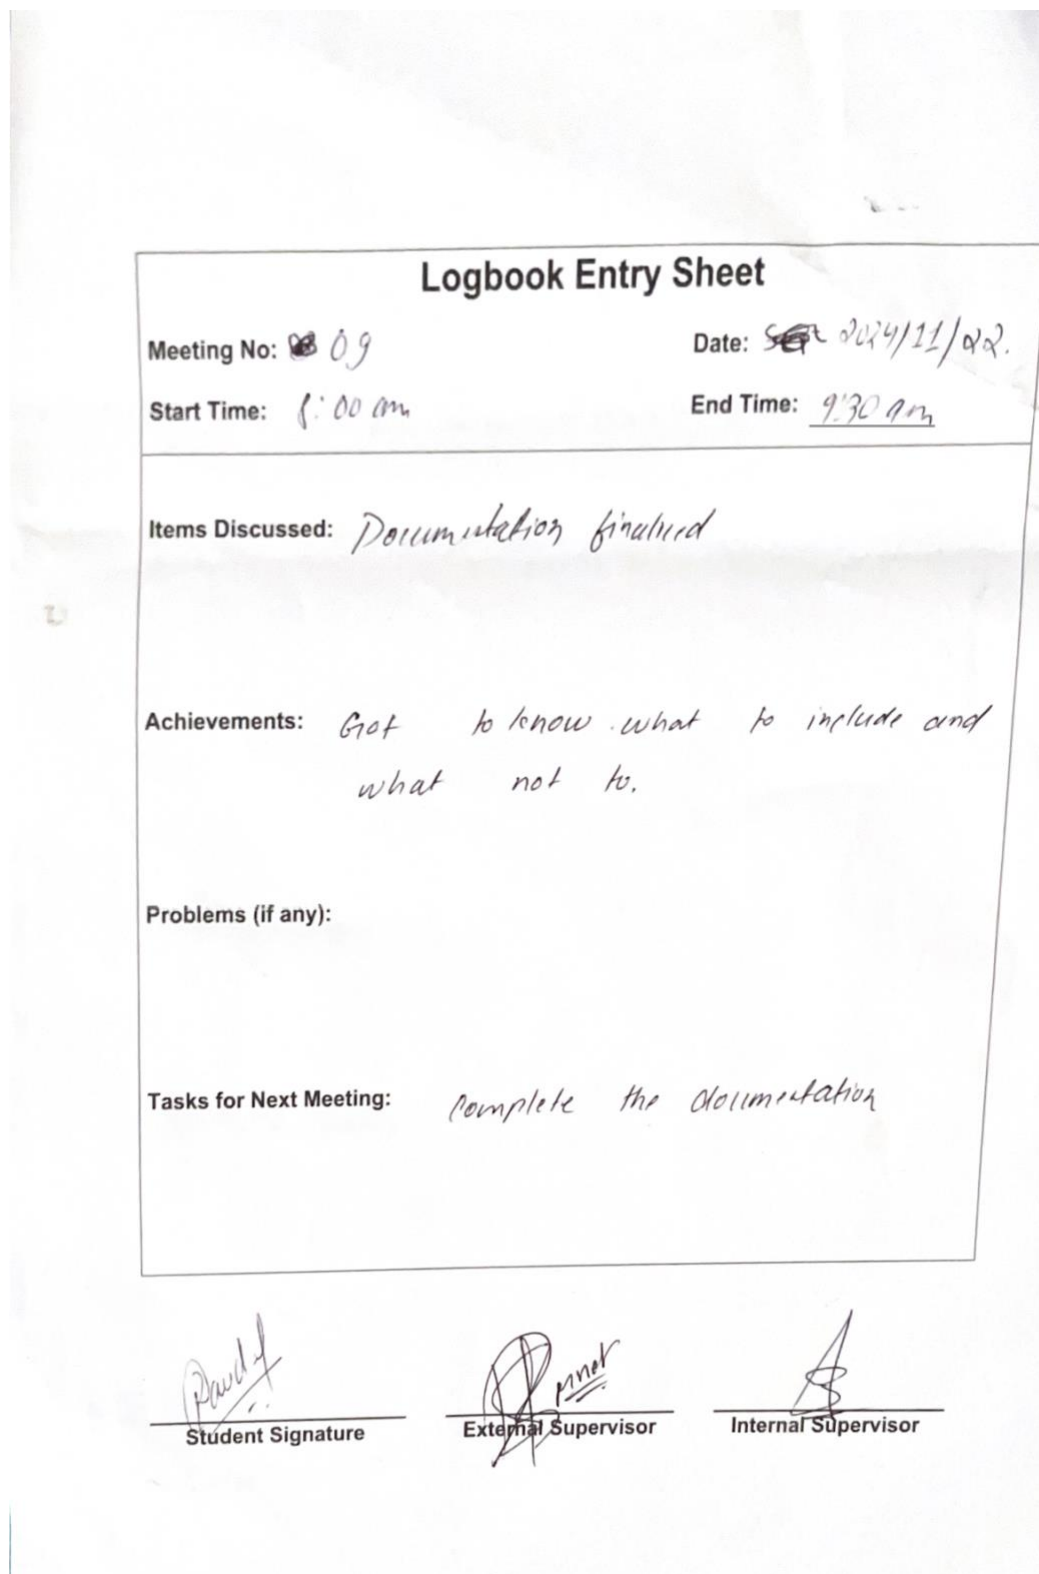 Logbook Entry Sheet
Meeting No: 09 Date: 2024/11/22.
Start Time: 8:00 am End Time: 9:30 am
Items Discussed: Documentation finalized
Achievements: Got to know what to include and
what not to.
Problems (if any):
Tasks for Next Meeting: Complete the documentation
Student Signature External Supervisor Internal Supervisor